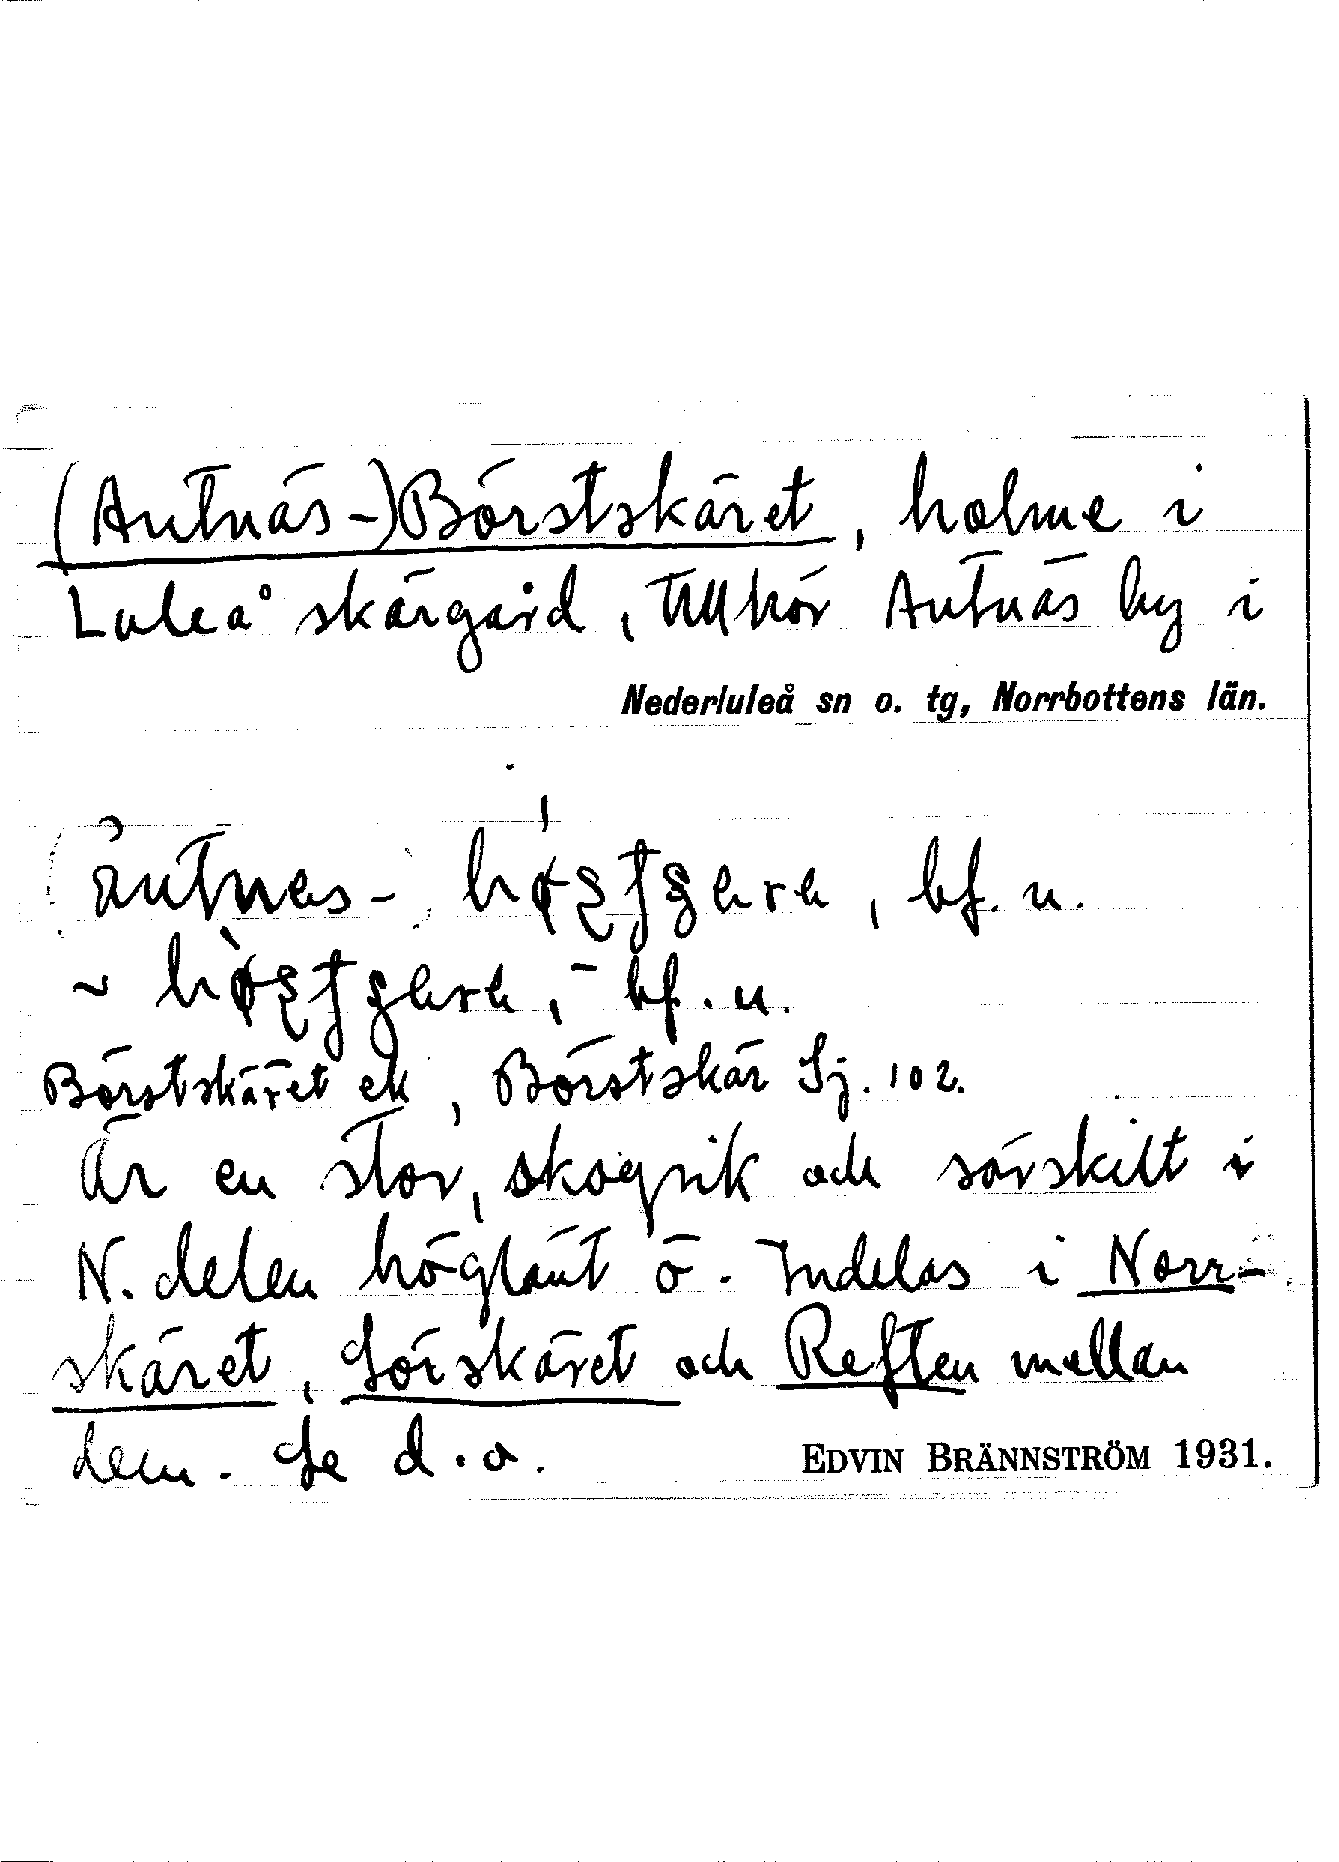 (Antnäs-)Börstskäret, holme i
Luleå skärgård, tillhör Antnäs by i
Nederluleå sn o. tg, Norrbottens län.
bf. n.
~ bf. n.
Börstskäret ek, Börstskär Sj. 102.
Är en stor, skogrik och särskilt i
N. delen höglänt ö. Indelas i Norr-
skäret, Sörskäret och Reften mellan
dem. Se d.o.
EDVIN BRÄNNSTRÖM 1931.